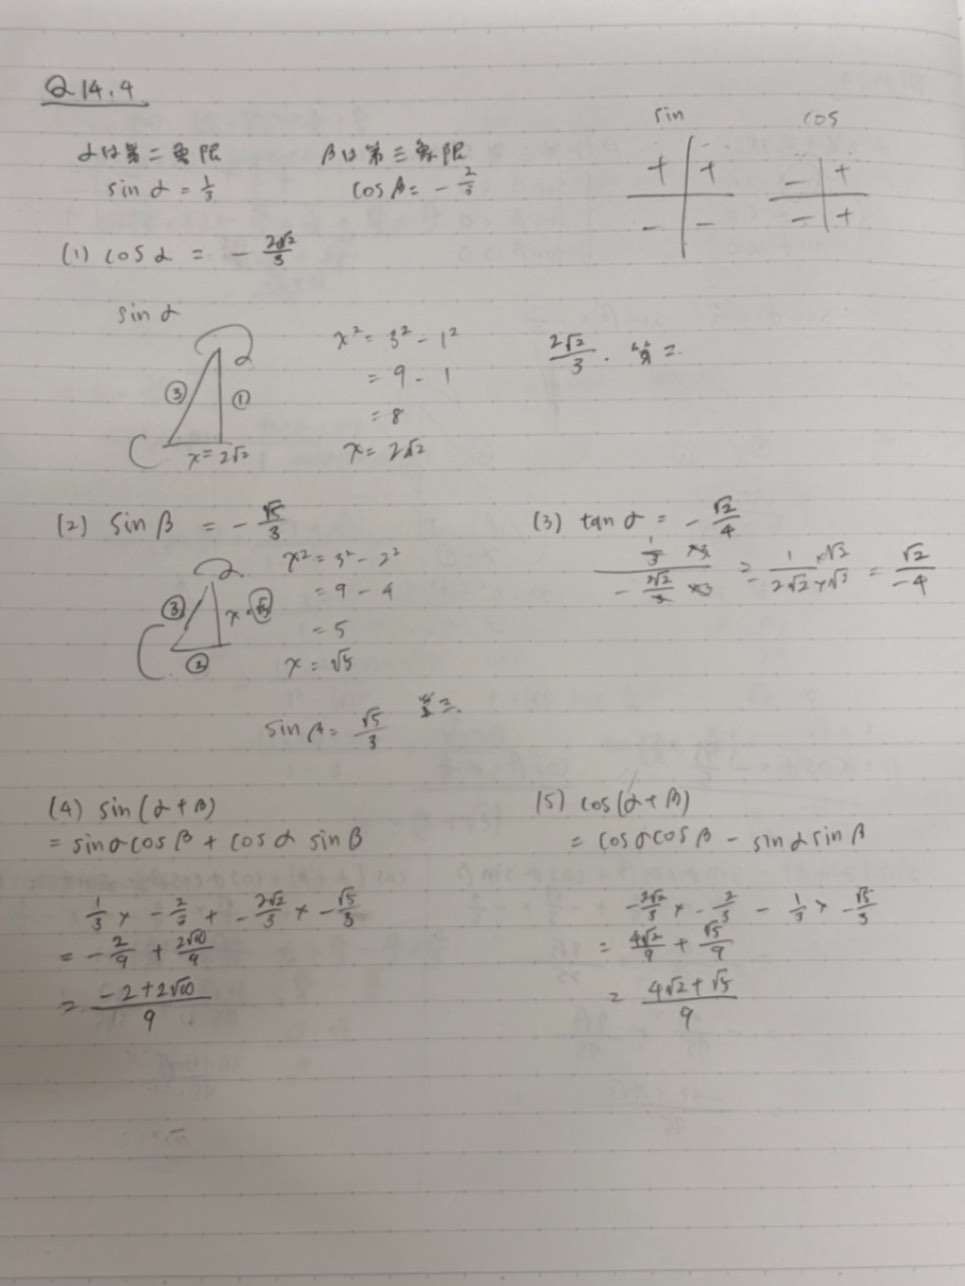 Q14.4
sin cos
αは第二象限 βは第三象限
+ + − +
− − − +
sin α = 1/3 cos β = − 2/3
(1) cos α = − 2√2/3
sin α
③ ①
x = 2√2
x² = 3² − 1²
= 9 − 1
= 8
x = 2√2
2√2/3 .
(2) sin β = − √5/3
③ x = √5
②
x² = 3² − 2²
= 9 − 4
= 5
x = √5
sin β = √5/3
(3) tan α = − √2/4
(1/3 ×3)/(− 2√2/3 ×3) = − (1 ×√2)/(2√2 ×√2) = √2/−4
(4) sin (α + β)
= sin α cos β + cos α sin β
1/3 × − 2/3 + − 2√2/3 × − √5/3
= − 2/9 + 2√10/9
= (− 2 + 2√10)/9
(5) cos (α + β)
= cos α cos β − sin α sin β
− 2√2/3 × − 2/3 − 1/3 × − √5/3
= 4√2/9 + √5/9
= (4√2 + √5)/9